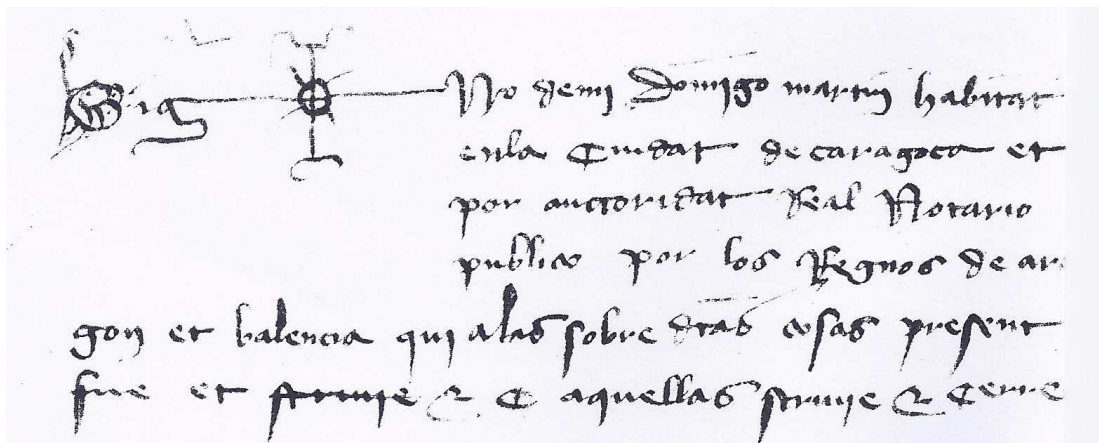 Sig No demi Domigo martin habitat
enla Ciudat de caragoca et
por auctoridat Real Notario
publico por los Regnos de ar
gon et balencia qui alas sobre dtas cosas present
fue et scriuie & C aquellas scriuie & Cerre